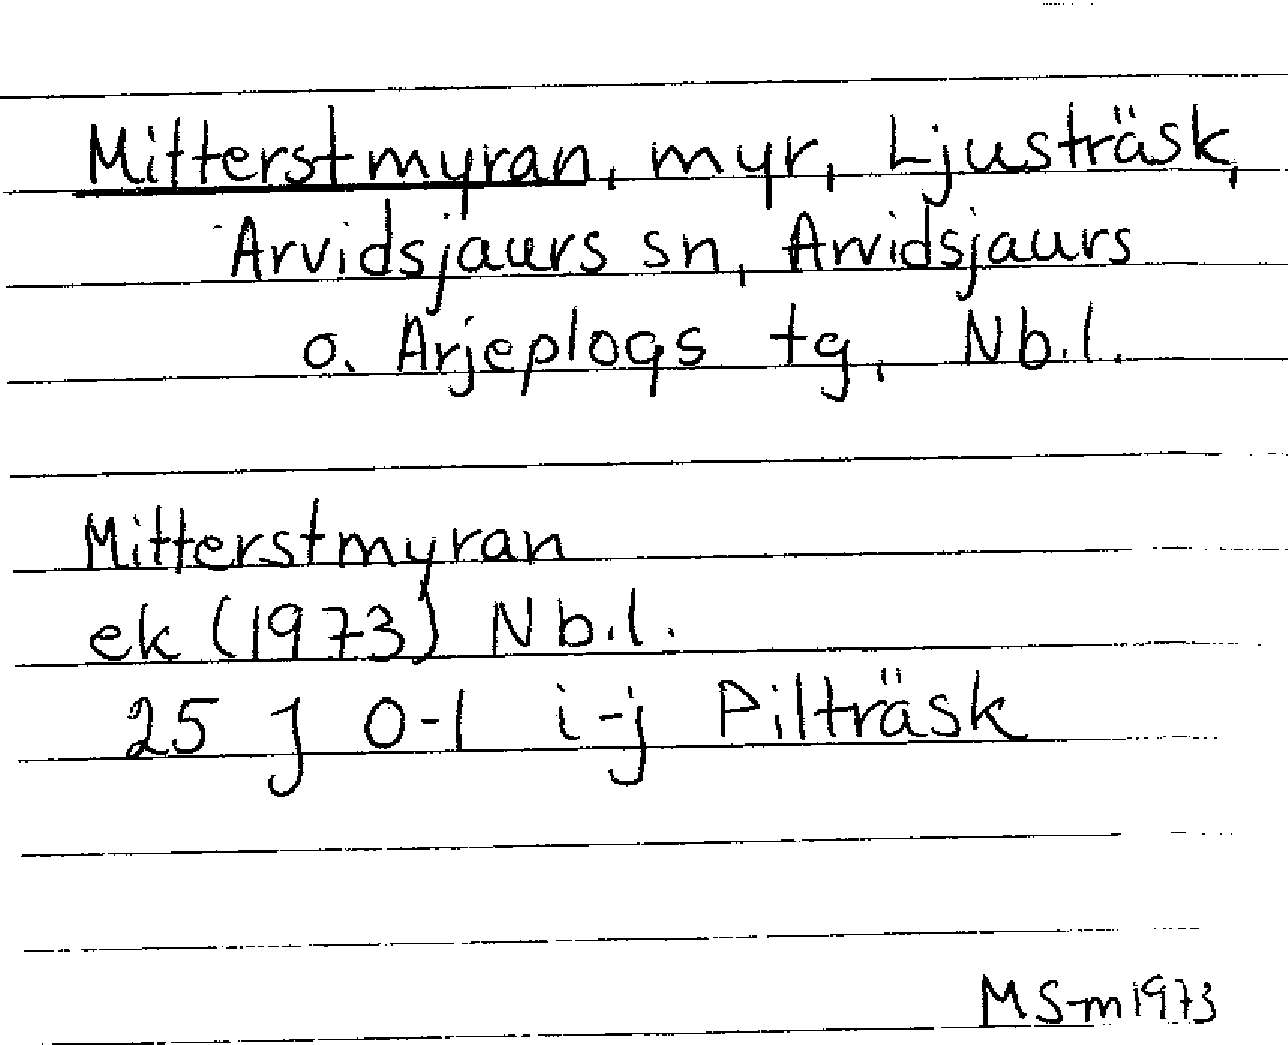 Mitterstmyran, myr, Ljusträsk,
Arvidsjaurs sn, Arvidsjaurs
o. Arjeplogs tg, Nb.l.
Mitterstmyran
ek (1973) Nb.l.
25 J 0-1 i-j Pilträsk
MS-m 1973